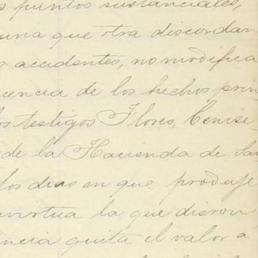 s puntos sustanciales,
una que otra discordan
accidentes, no modifica
cencia de los hechos prin
os testigos Flores, Cenise
de la Hacienda de la
los dias en que produje
la que dieron
ncia quita el valor a